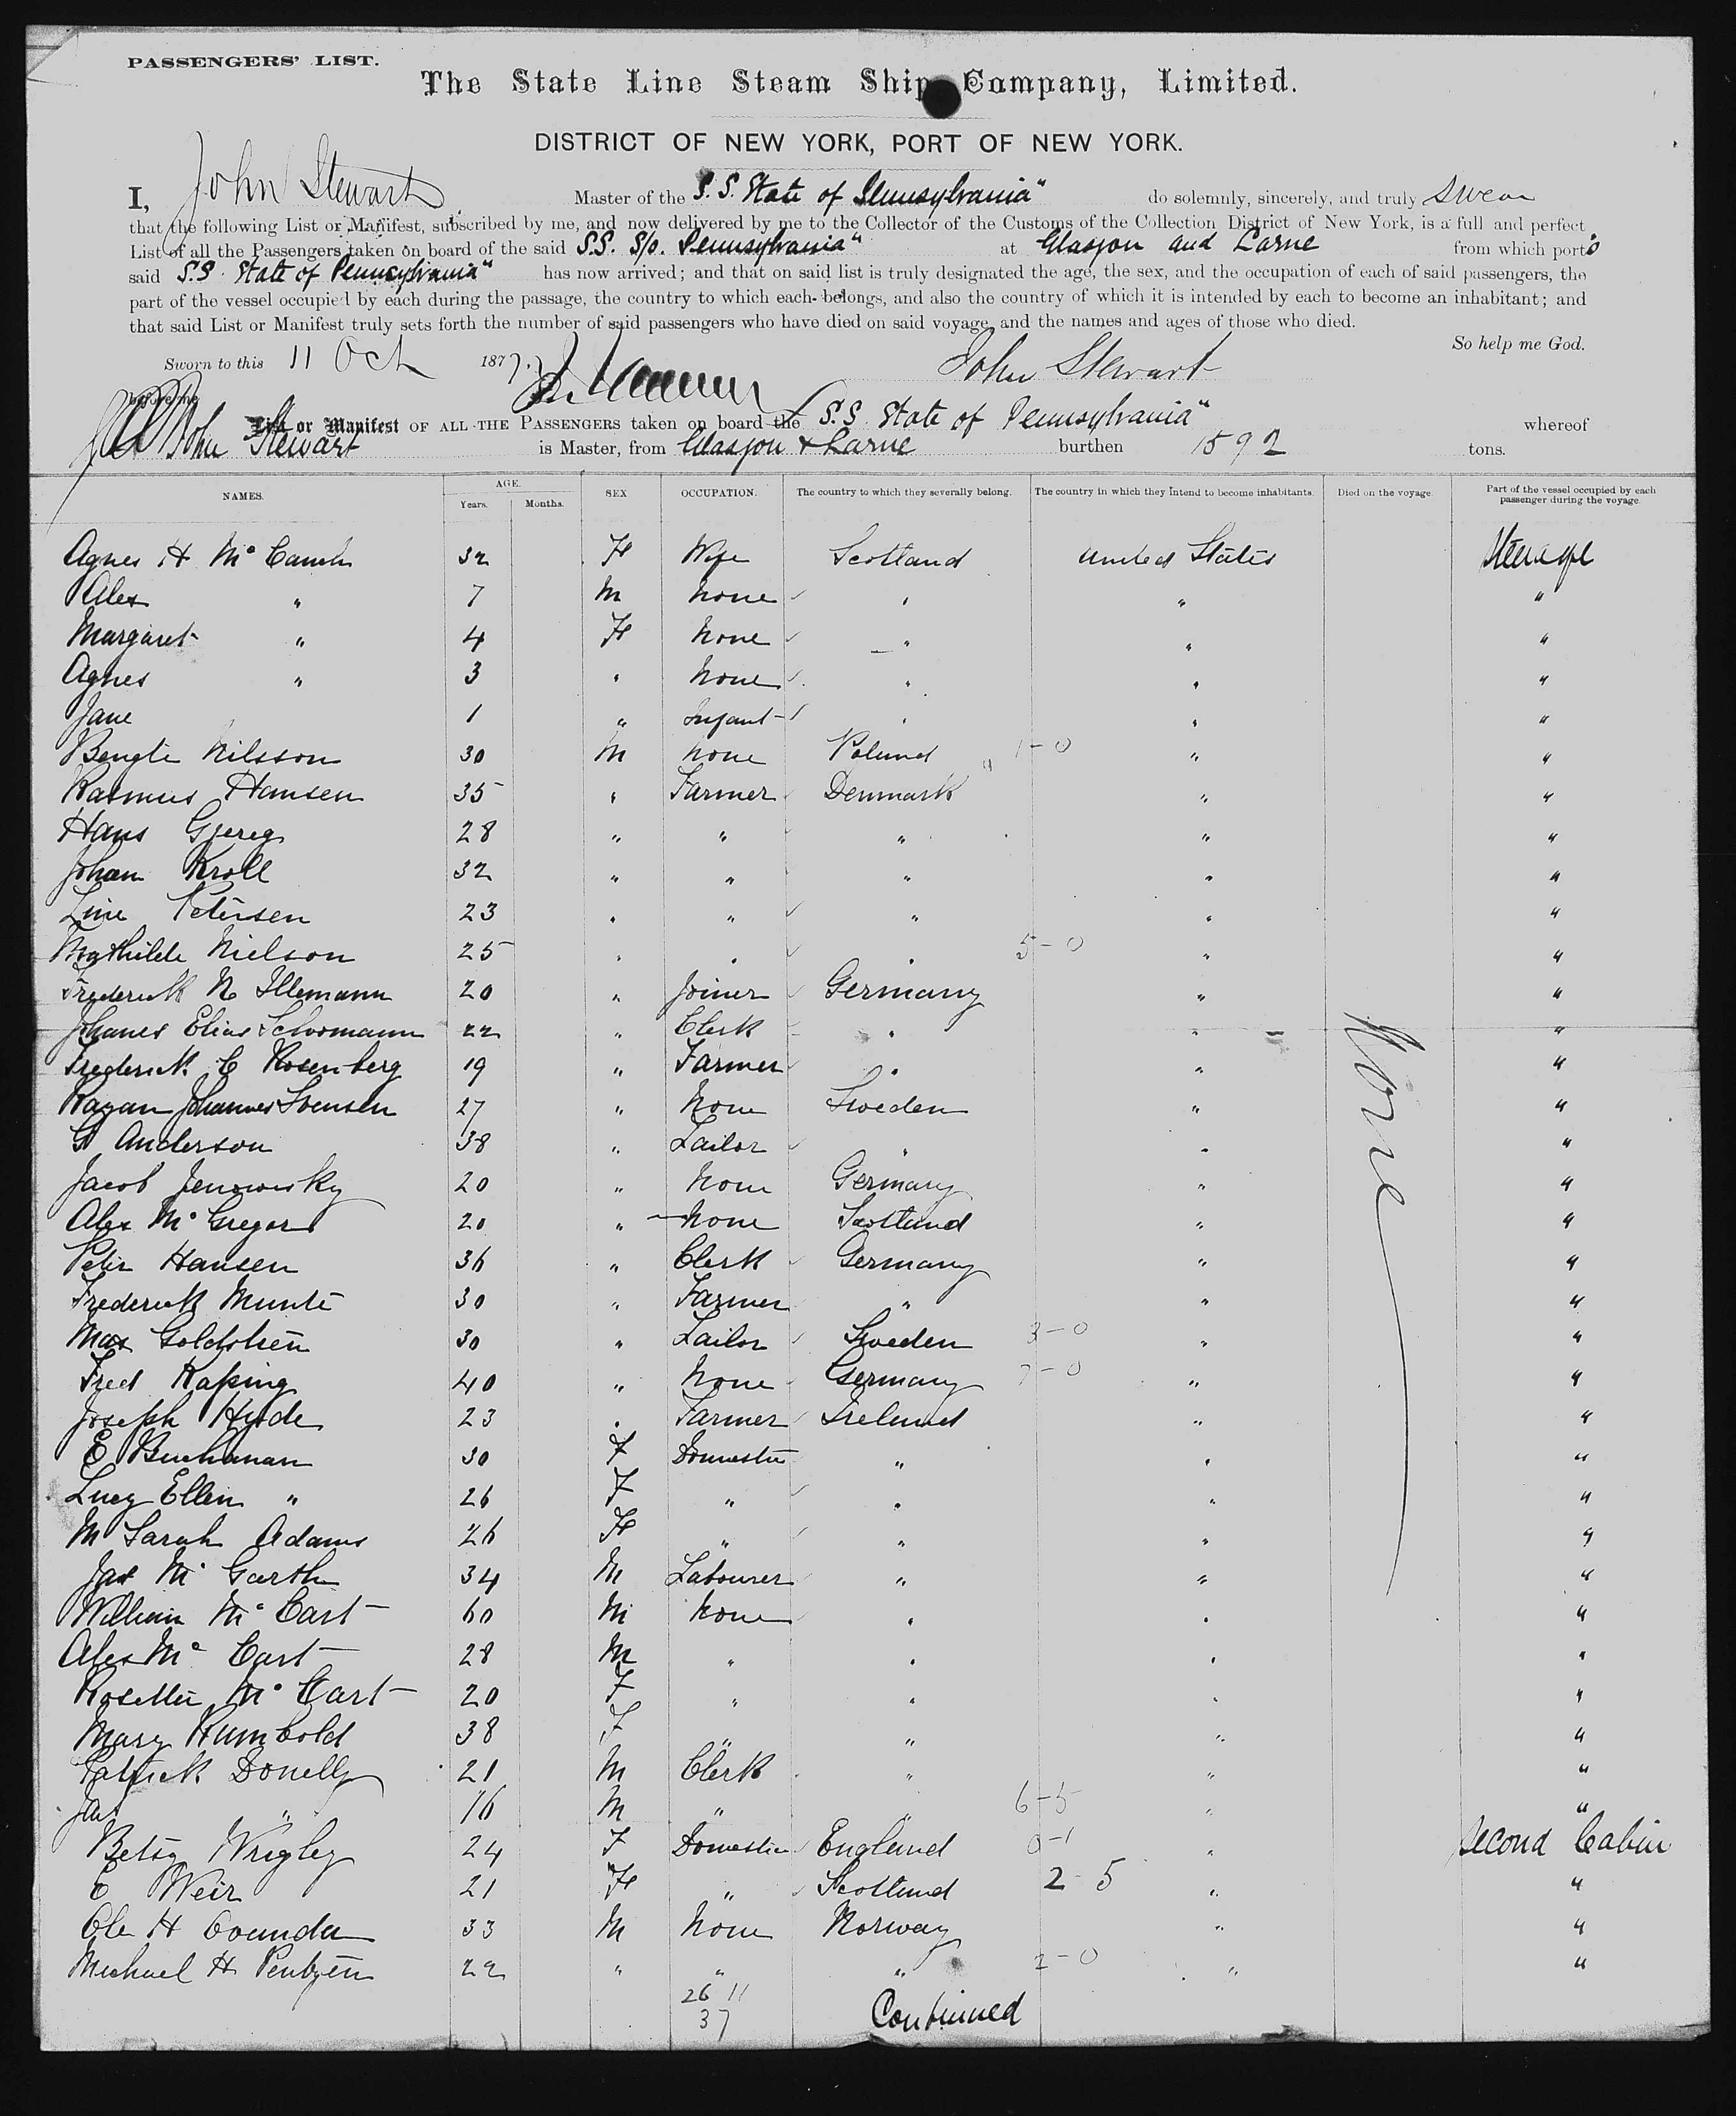 PASSENGERS' LIST.
The State Line Steam Ship Company, Limited.
DISTRICT OF NEW YORK, PORT OF NEW YORK.
I, John Stewart Master of the S.S. State of Pennsylvania" do solemnly, sincerely, and truly swear
that the following List or Manifest, subscribed by me, and now delivered by me to the Collector of the Customs of the Collection District of New York, is a full and perfect
List of all the Passengers taken on board of the said S.S. S/o. Pennsylvania" at Glasgow and Larne from which port s
said S.S State of Pennsylvania" has now arrived; and that on said list is truly designated the age, the sex, and the occupation of each of said passengers, the
part of the vessel occupied by each during the passage, the country to which each belongs, and also the country of which it is intended by each to become an inhabitant; and
that said List or Manifest truly sets forth the number of said passengers who have died on said voyage, and the names and ages of those who died.
So help me God.
Sworn to this 11 Oct 1877. John Stewart
before me
List or Manifest OF ALL THE PASSENGERS taken on board the S.S. State of Pennsylvania" whereof
John Stewart is Master, from Glasgow & Larne burthen 1592 tons.
NAMES. AGE. SEX OCCUPATION. The country to which they severally belong. The country in which they intend to become inhabitants. Died on the voyage. Part of the vessel occupied by each passenger during the voyage.
Years. Months.
Agnes H Mc 32 F Wife Scotland United States Steerage
Alex " 7 M None " " "
Margaret " 4 F None " " "
Agnes " 3 " None " " "
Jane 1 " Infant " " "
Bengte Nilsson 30 M None Poland 1-0 " "
Rasmus Hansen 35 " Farmer Denmark " "
Hans Gjereg 28 " " " " "
Johan Kroll 32 " " " " "
Line Petersen 23 " " " " "
Mathilde Nielson 25 " " " 5-0 " "
Frederick N Illemann 20 " Joiner Germany " "
Johanes Elias Schoomann 22 " Clerk " " "
Frederick C Rosenberg 19 " Farmer " " "
Johannes Svensen 27 " None Sweden " "
G Anderson 38 " Tailor " " "
Jacob Jenowisky 20 " None Germany " "
Alex Mc Gregor 20 " None Scotland " "
Peter Hansen 36 " Clerk Germany " "
Frederick Munte 30 " Farmer " " "
Max Goldstein 30 " Tailor Sweden 3-0 " "
Fred Kaping 40 " None Germany 7-0 " "
Joseph Hyde 23 " Farmer Ireland " "
E Buchanan 30 F Domestic " " "
Lucy Ellen " 26 F " " " "
M Sarah Adams 26 F " " " "
Jas Mc Garth 34 M Labourer " " "
William Mc Cart 60 M None " " "
Alex Mc Cart 28 M " " " "
Rosetta Mc Cart 20 F " " " "
Mary Rumbold 38 F " " " "
Patrick Donelly 21 M Clerk " " "
Jas " 16 M " " 6-5 " "
Betsy Wrigley 24 F Domestic England 0-1 " Second Cabin
E Weir 21 F " Scotland 2-5 " "
Ole H 33 M None Norway " "
Michael H 22 " " " 2-0 " "
None
26 11
37
Continued